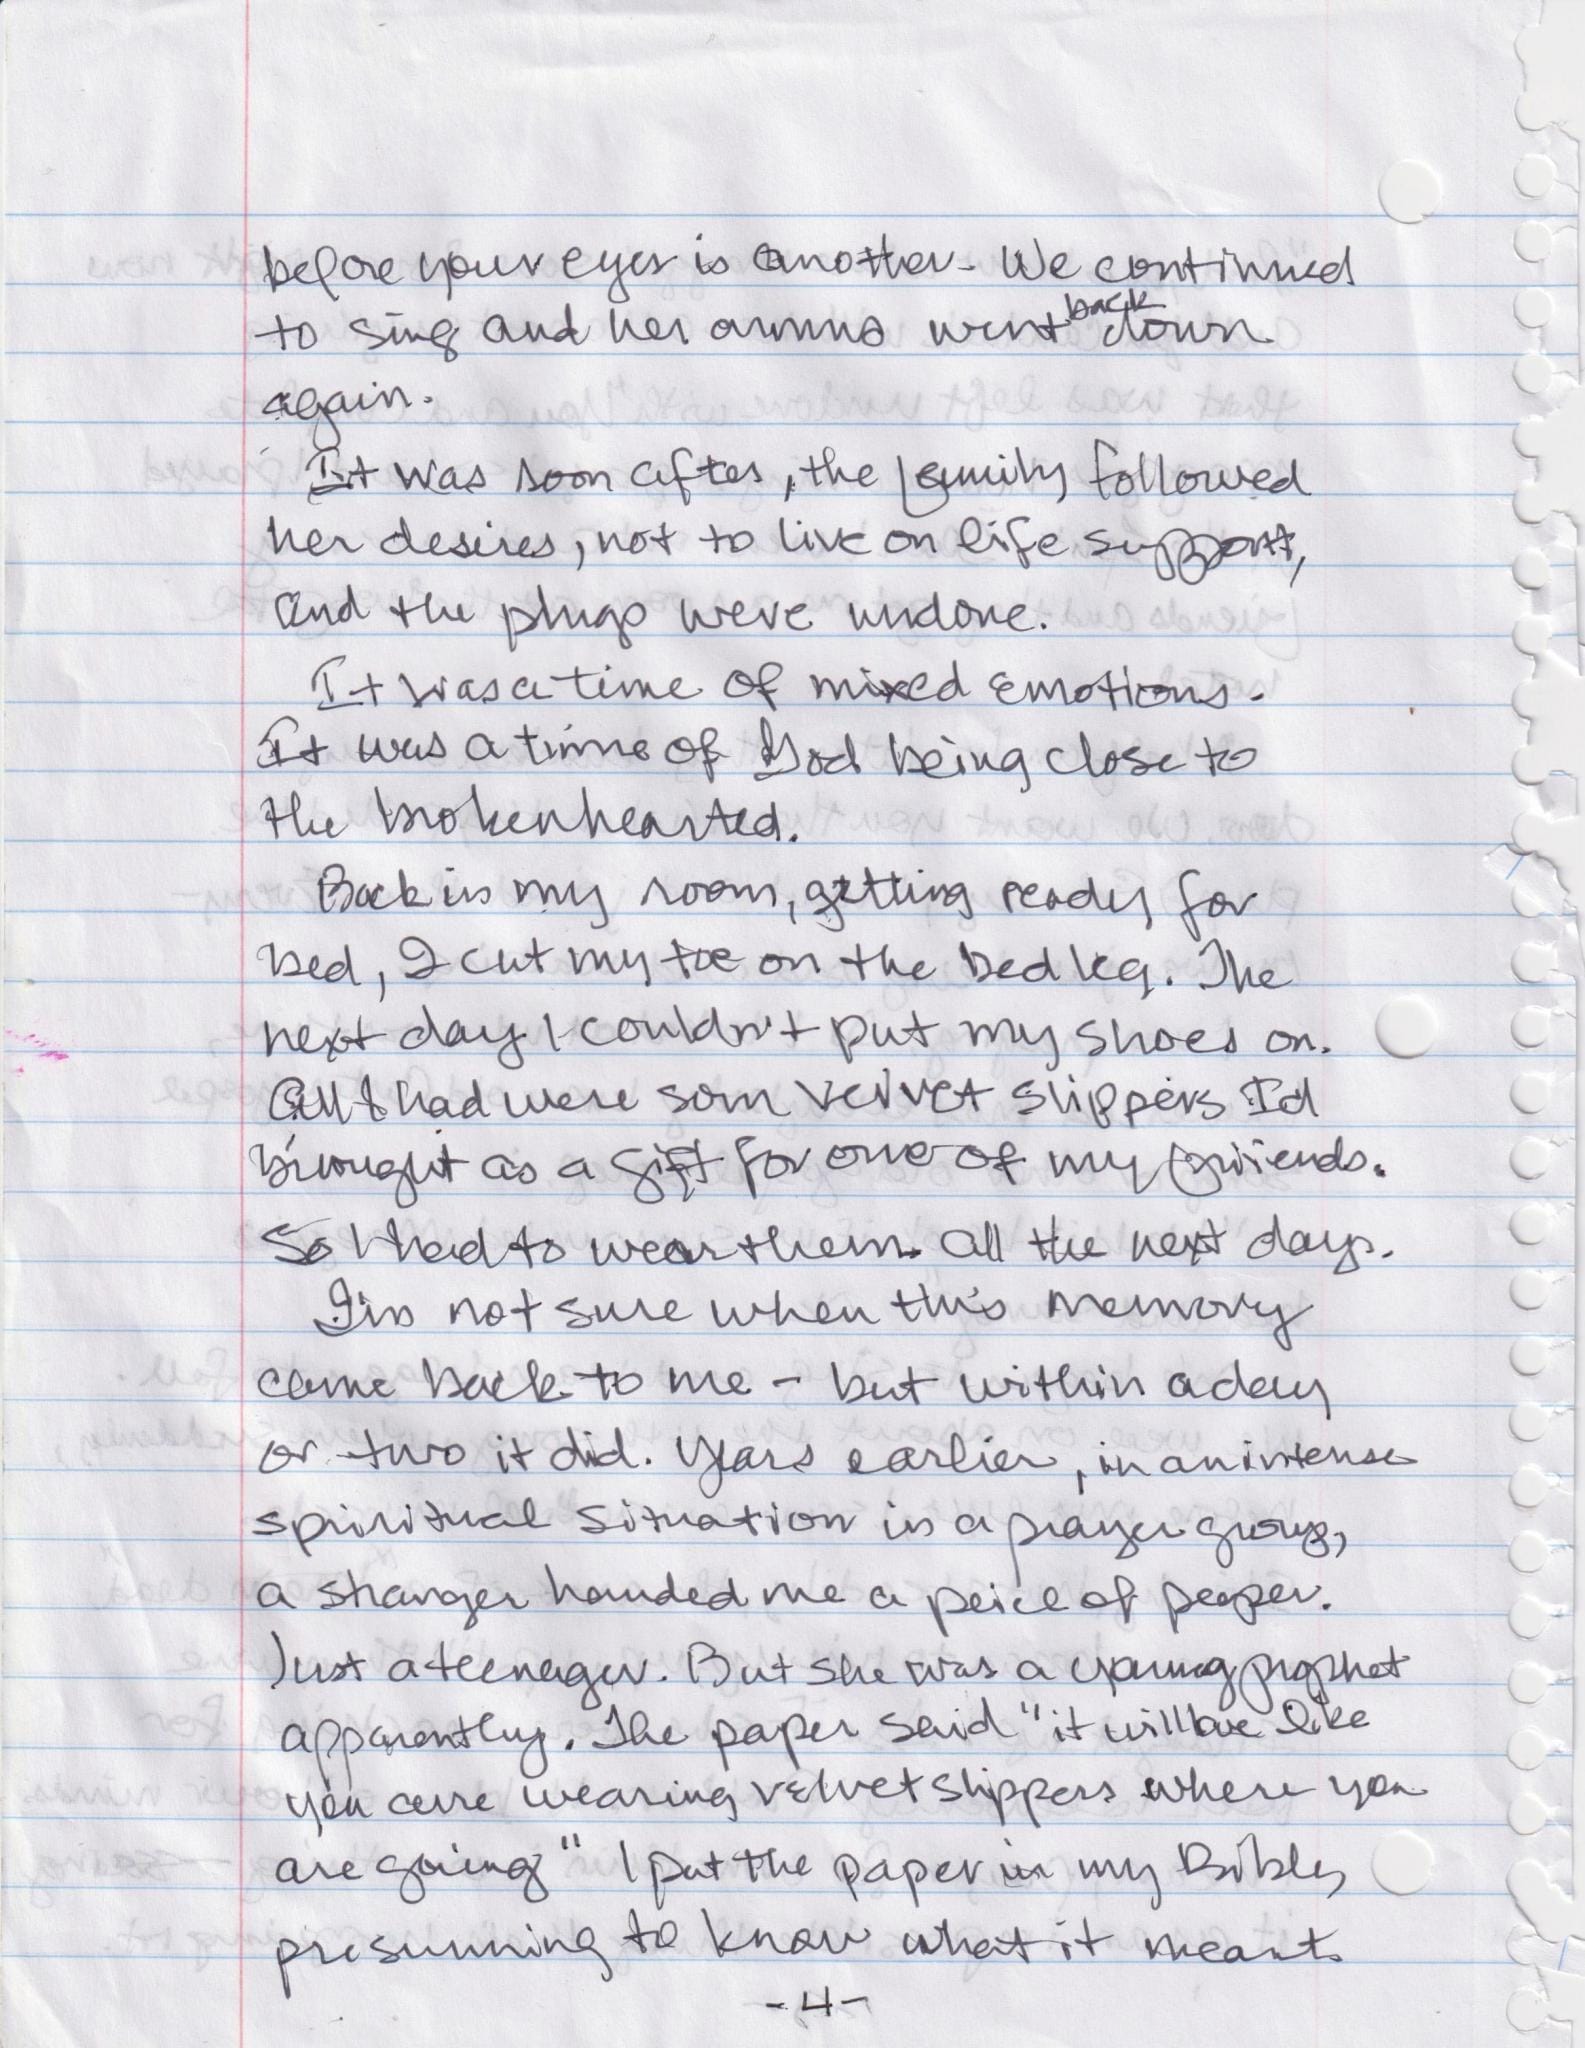 before your eyes is another. We continued
to sing and her arms went back down
again.
It was soon after, the family followed
her desires, not to live on life support,
and the plugs were undone.
It was a time of mixed emotions.
It was a time of God being close to
the brokenhearted.
Back in my room, getting ready for
bed, I cut my toe on the bed leg. The
next day I couldn't put my shoes on.
All I had were som velvet slippers I'd
brought as a gift for one of my friends.
So I had to wear them. all the next days.
I'm not sure when this memory
came back to me - but within a day
or two it did. Years earlier, in an intense
spiritual situation in a prayer group,
a stranger handed me a peice of paper.
Just a teenager. But she was a young prophet
apparently. The paper said "it will be like
you are wearing velvet slippers where you
are going" I put the paper in my Bible,
presumming to know what it meant.
-4-